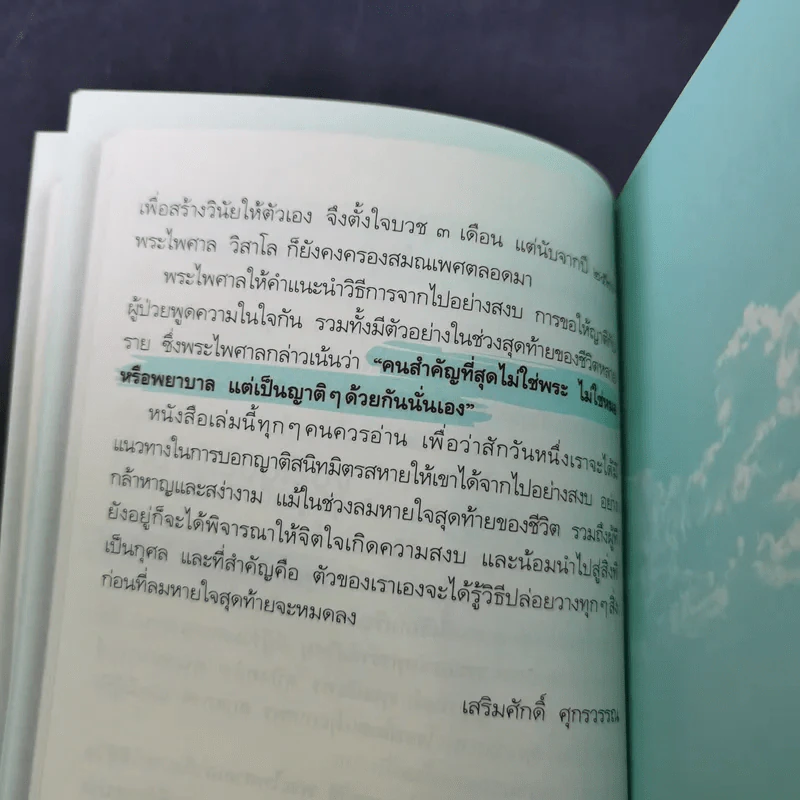 เพื่อสร้างวินัยให้ตัวเอง จึงตั้งใจบวช ๓ เดือน แต่นับจากปี
พระไพศาล วิสาโล ก็ยังคงครองสมณเพศตลอดมา
พระไพศาลให้คำแนะนำวิธีการจากไปอย่างสงบ การขอให้ญาติกับ
ผู้ป่วยพูดความในใจกัน รวมทั้งมีตัวอย่างในช่วงสุดท้ายของชีวิต
ราย ซึ่งพระไพศาลกล่าวเน้นว่า “คนสำคัญที่สุดไม่ใช่พระ ไม่ใช่หมอ
หรือพยาบาล แต่เป็นญาติๆ ด้วยกันนั่นเอง”
หนังสือเล่มนี้ทุกๆ คนควรอ่าน เพื่อว่าสักวันหนึ่งเราจะได้มี
แนวทางในการบอกญาติสนิทมิตรสหายให้เขาได้จากไปอย่างสงบ อย่าง
กล้าหาญและสง่างาม แม้ในช่วงลมหายใจสุดท้ายของชีวิต รวมถึงผู้ที่
ยังอยู่ก็จะได้พิจารณาให้จิตใจเกิดความสงบ และน้อมนำไปสู่สิ่งที่
เป็นกุศล และที่สำคัญคือ ตัวของเราเองจะได้รู้วิธีปล่อยวางทุกๆ สิ่ง
ก่อนที่ลมหายใจสุดท้ายจะหมดลง
เสริมศักดิ์ ศุกรวรรณ